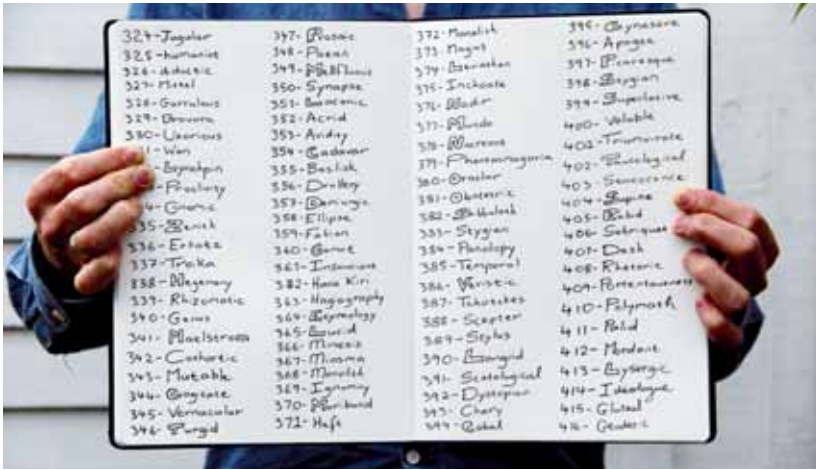 324-Jugular
325-humanist
326-didactic
327-Motel
328-Garrulous
329-Bravura
330-Uxorious
Wan
Proclivity
Gnomic
335-Zenith
336-Ersatz
337-Troika
338-Hegemony
339-Rhizomatic
340-Genus
341-Maelstrom
342-Cathartic
343-Mutable
344-Cogitate
345-Vernacular
346-Turgid
347-Prosaic
348-Paean
349-Mellifluous
350-Synapse
351-Laconic
352-Acrid
353-Aridity
354-Cadaver
355-Basilisk
356-Drollery
357-Demiurgic
358-Ellipse
359-Fabian
360-Gamut
361-Insouciant
382-Hara Kiri
363-Hagiography
364-Etymology
365-Lucid
366-Mimesis
367-Miasma
368-Monolith
369-Ignominy
370-Moribund
371-Haft
372-Monolith
373-Magus
374-
375-Inchoate
376-Nadir
377-Mundo
378-Nacreous
379-Phantasmagoria
380-Oracular
381-Obstetric
382-
383-Stygian
384-Panoply
385-Temporal
386-Veristic
387-
388-Scepter
389-Stylus
390-Languid
391-Scatological
392-Dystopian
393-Chary
394-Cabal
395-Cynosure
396-Apogee
397-Picaresque
398-Stygian
399-Superlative
400-Voluble
402-Triumvirate
402-
403-
404-Supine
405-Rabid
406-Sobriquet
407-Dash
408-Rhetoric
409-Portentousness
410-Polymath
411-Palid
412-Mordant
413-Lysergic
414-Ideologue
415-Gluteal
416-